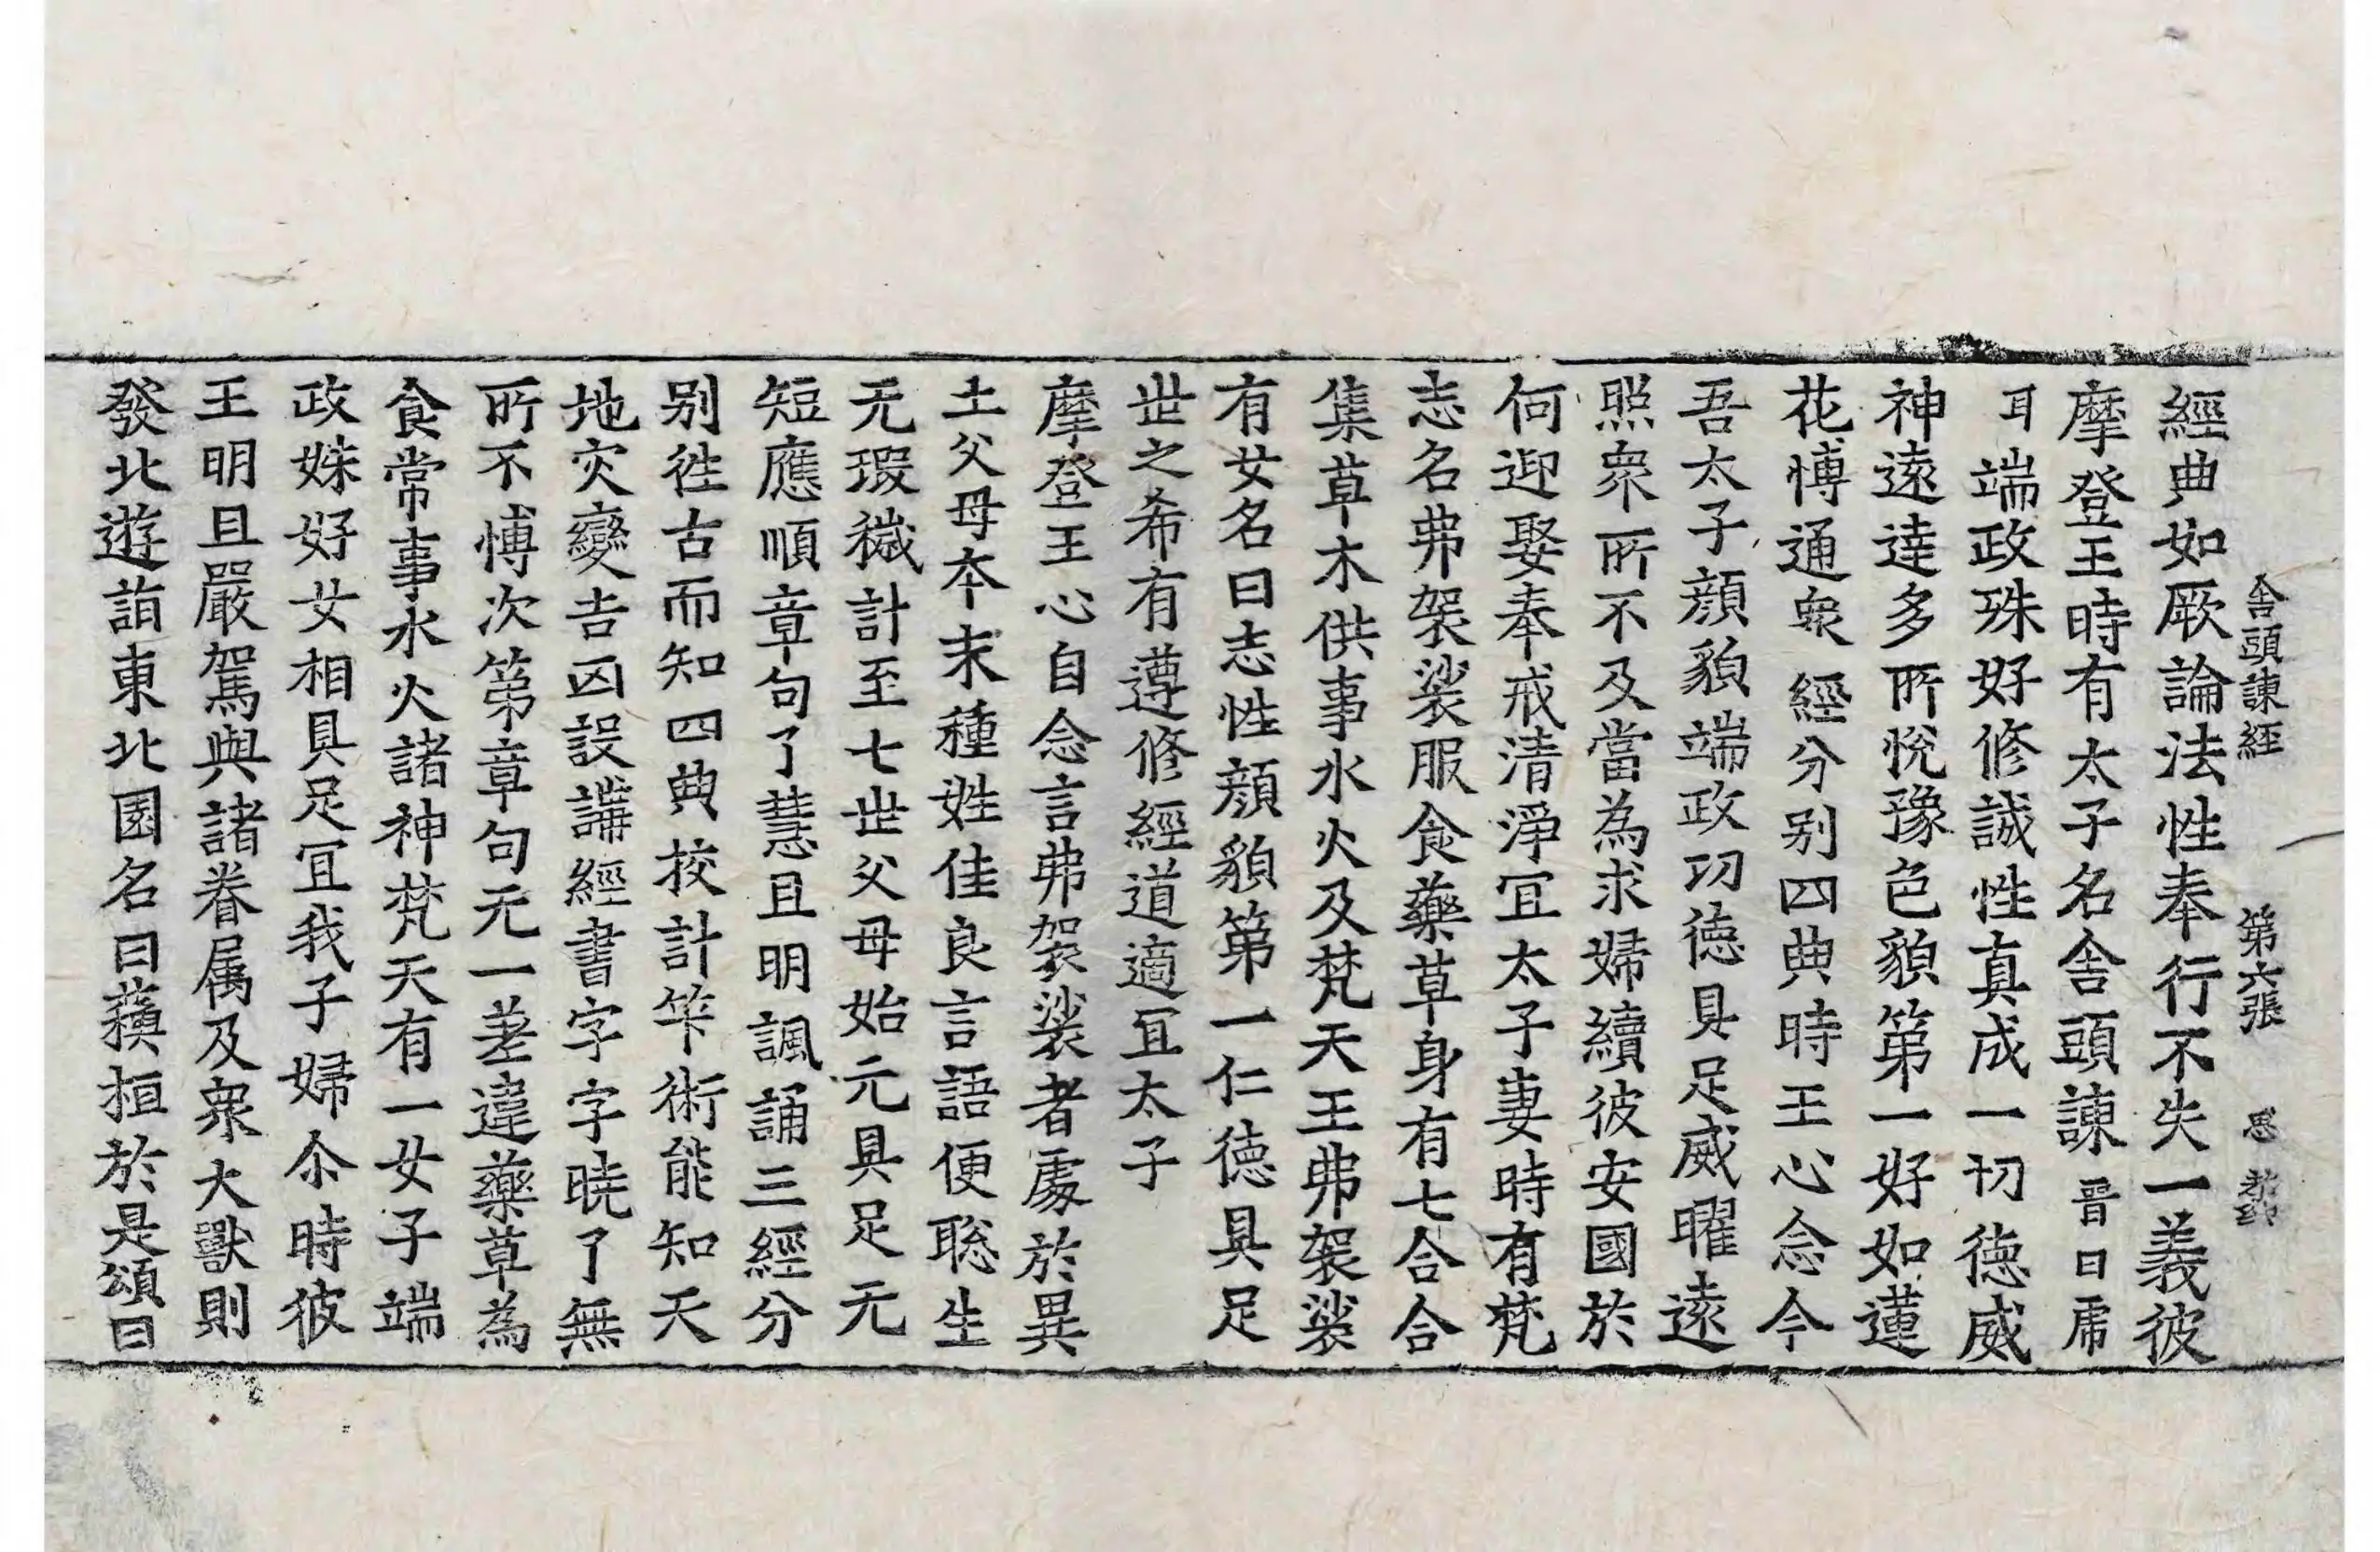 舍頭諫經　第六張　思
經典如厥論法性奉行不失一義彼
摩登王時有太子名舍頭諫晉曰虎
耳端政殊好修誠性真成一切德威
神遠達多所悅豫色貌第一好如蓮
花博通衆經分别四典時王心念今
吾太子顔貌端政功徳具足威曜遠
照衆所不及當為求婦續彼安國於
何迎娶奉戒清淨冝太子妻時有梵
志名弗袈裟服食藥草身有七合合
集草木供事水火及梵天王弗袈裟
有女名曰志性顔貌第一仁徳具足
世之希有遵修經道適冝太子
摩登王心自念言弗袈裟者處於異
土父母夲末種姓佳良言語便聡生
无瑕穢計至七世父母始元具足无
短應順章句了慧且明諷誦三經分
别徃古而知四典挍計筭術能知天
地灾變吉凶設講經書字字曉了無
所不博次第章句无一差違藥草為
食常事水火諸神梵天有一女子端
政姝好女相具足冝我子婦尒時彼
王明旦嚴駕與諸眷属及衆大獸則
發北遊詣東北園名曰蘱桓於是頌曰